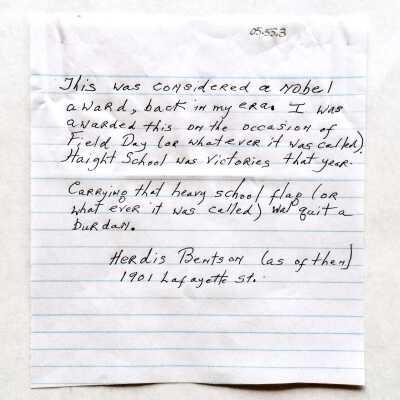 05.55.3
This was considered a nobel
award, back in my era. I was
awarded this on the occasion of
Field Day (or what ever it was called).
Haight School was victories that year.
Carrying that heavy school flag (or
what ever it was called) was quit a
burdan.
Herdis Bentson (as of then)
1901 Lafayette St.